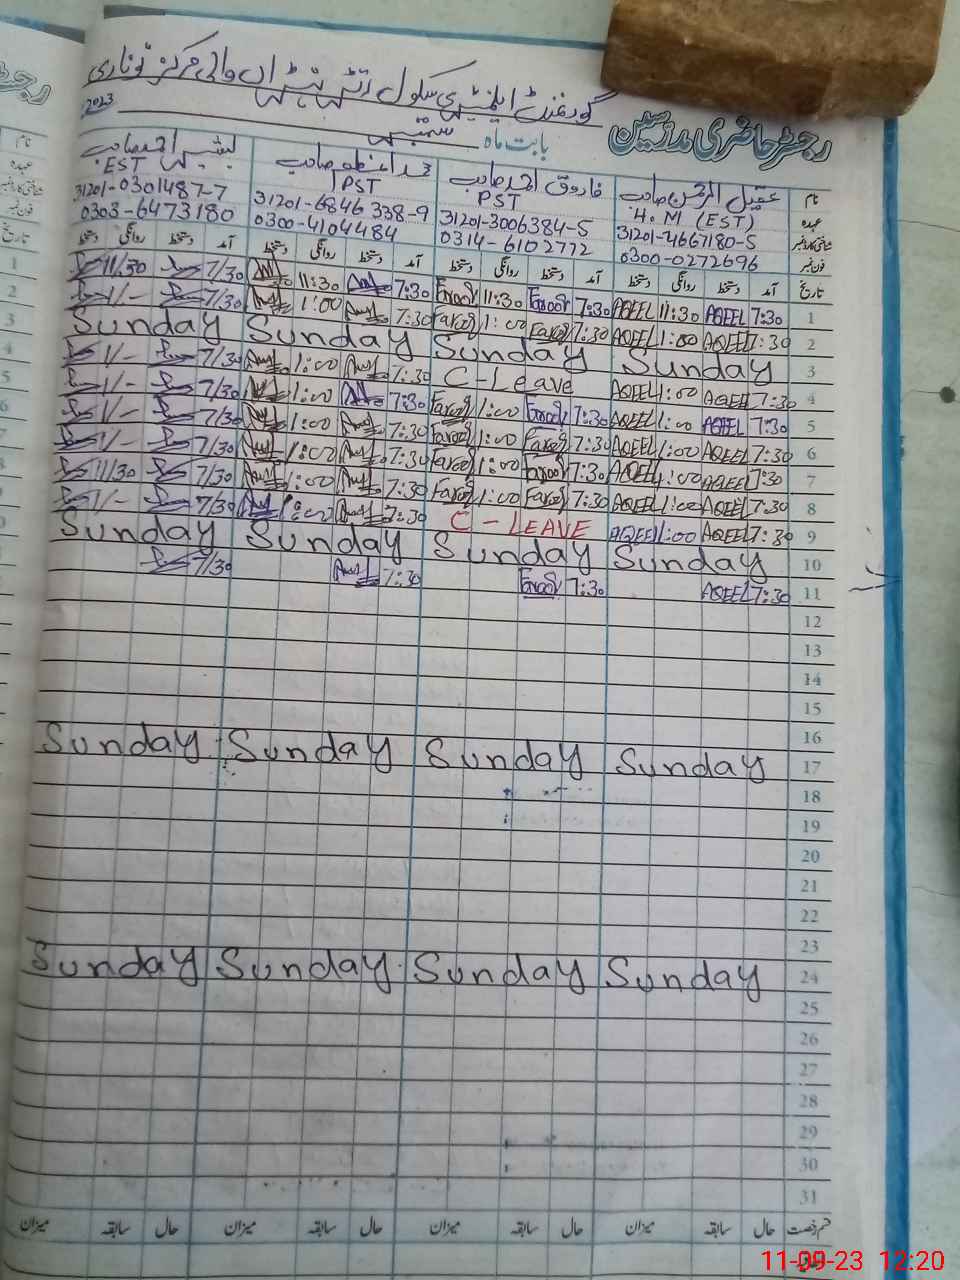 رجسٹر حاضری مدرسین
گورنمنٹ ایلیمنٹری سکول
2023
بابت ماہ ستمبر
نام عقیل الرحمن صاحب فاروق احمد صاحب صاحب بشیر احمد صاحب نام
عہدہ H.M (EST) PST PST EST عہدہ
31201-4667180-5 31201-3006384-5 31201-6846338-9 31201-0301487-7
فون نمبر 0300-0272696 0314-6102772 0300-4104484 0303-6473180 فون نمبر
تاریخ آمد دستخط روانگی دستخط آمد دستخط روانگی دستخط آمد دستخط روانگی دستخط آمد دستخط روانگی دستخط تاریخ
1 7:30 AQEEL 11:30 AQEEL 7:30 Farooq 11:30 Farooq 7:30 11:30 7/30 11/30 1
2 7:30 AQEEL 1:00 AQEEL 7:30 Farooq 1:00 Farooq 7:30 1:00 7/30 1/- 2
3 Sunday Sunday Sunday Sunday 3
4 7:30 AQEEL 1:00 AQEEL C-Leave 7:30 1:00 7/30 1/- 4
5 7:30 AQEEL 1:00 AQEEL 7:30 Farooq 1:00 Farooq 7:30 1:00 7/30 1/- 5
6 7:30 AQEEL 1:00 AQEEL 7:30 Farooq 1:00 Farooq 7:30 1:00 7/30 1/- 6
7 7:30 AQEEL 1:00 AQEEL 7:30 Farooq 1:00 Farooq 7:30 1:00 7/30 1/-
8 7:30 AQEEL 1:00 AQEEL 7:30 Farooq 1:00 Farooq 7:30 1:00 7/30 11/30
9 7:30 AQEEL 1:00 AQEEL C-LEAVE 7:30 1:00 7/30 1/-
10 Sunday Sunday Sunday Sunday
11 7:30 AQEEL 7:30 Farooq 7:30 7/30
12
13
14
15
16
17 Sunday Sunday Sunday Sunday
18
19
20
21
22
23
24 Sunday Sunday Sunday Sunday
25
26
27
28
29
30
31
قسم رخصت حال سابقہ میزان حال سابقہ میزان حال سابقہ میزان حال سابقہ میزان
11-09-23 12:20